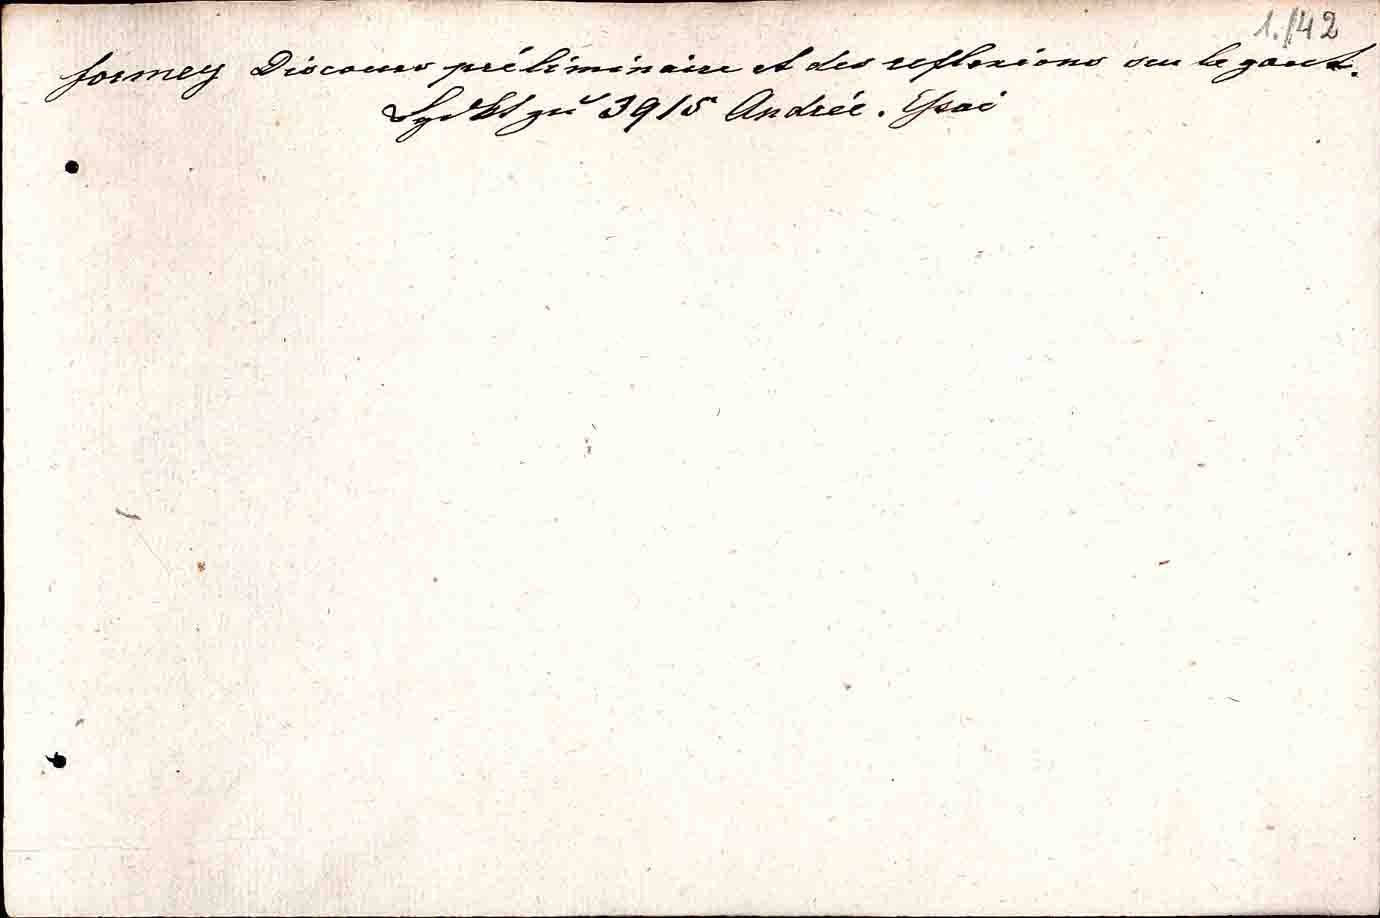 1./42
formey Discours préliminaire et des reflexions sur le gout.
zu 3915 André. Essai